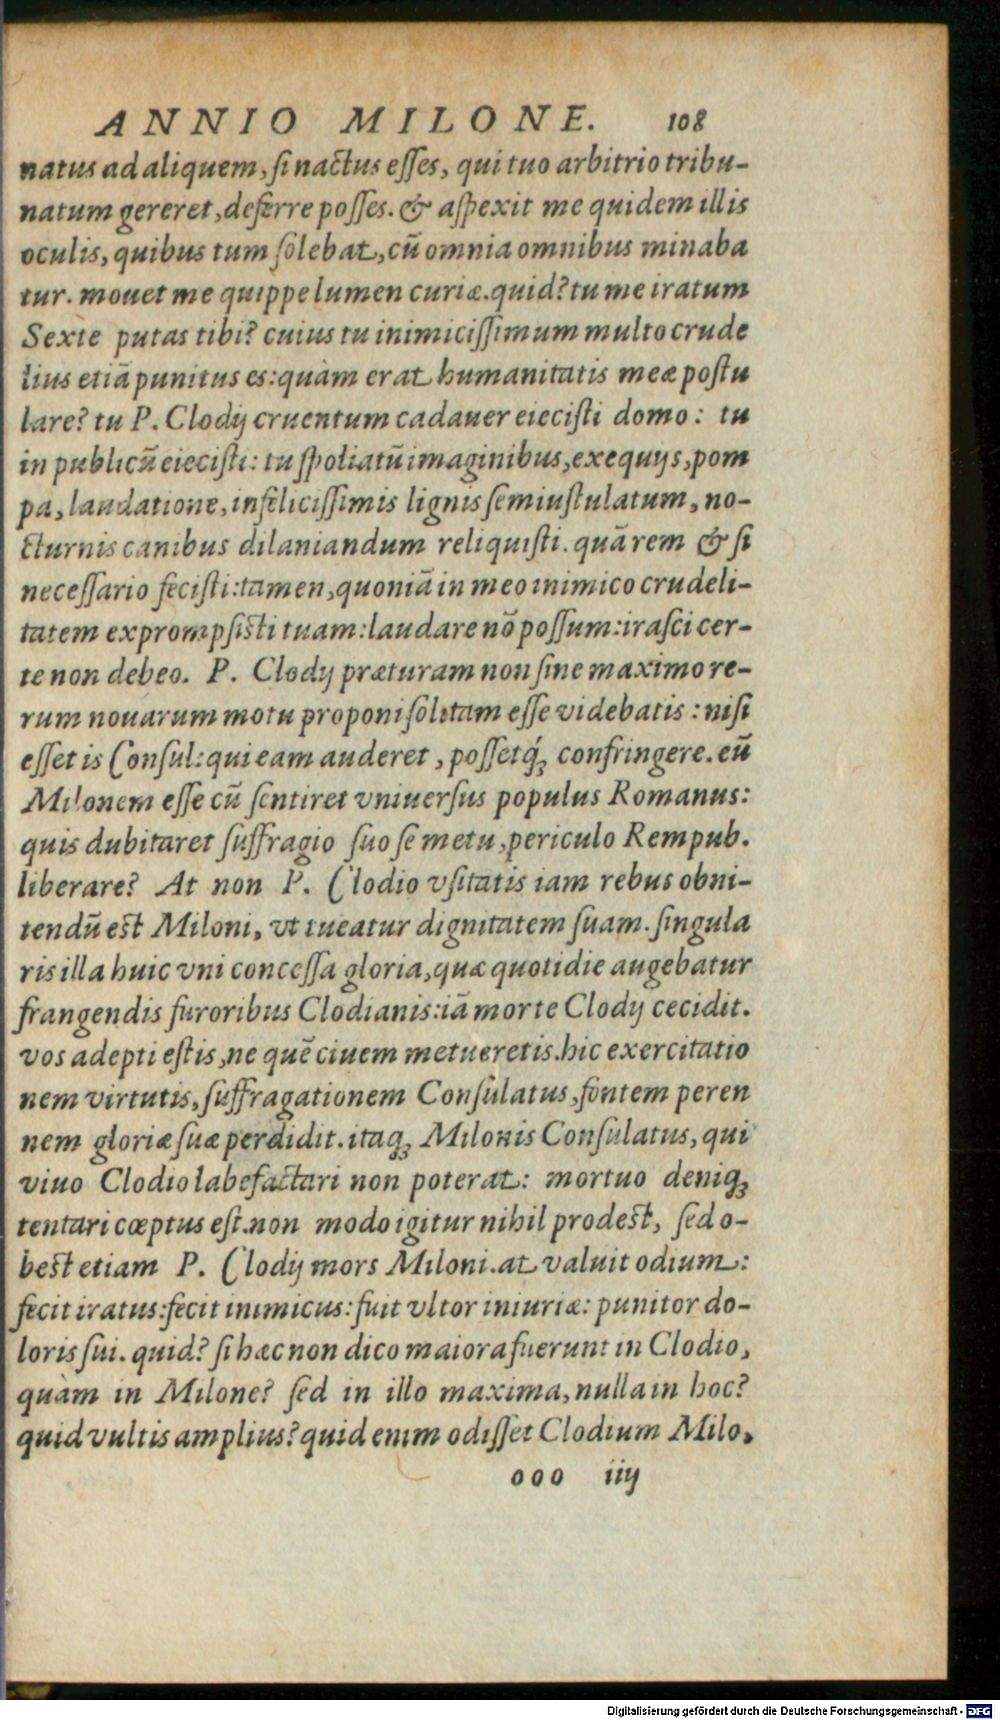 ANNIO MILONE. 108
natus ad aliquem, si nactus esses, qui tuo arbitrio tribu-
natum gereret, deferre posses. & aspexit me quidem illis
oculis, quibus tum solebat, cũ omnia omnibus minaba
tur. mouet me quippe lumen curiæ. quid? tu me iratum
Sexte putas tibi? cuius tu inimicissimum multo crude
lius etiã punitus es: quàm erat humanitatis meæ postu
lare? tu P. Clodij cruentum cadauer eiecisti domo: tu
in publicũ eiecisti: tu spoliatũ imaginibus, exequijs, pom
pa, laudatione, infelicissimis lignis semiustulatum, no-
cturnis canibus dilaniandum reliquisti. quã rem & si
necessario fecisti: tamen, quoniã in meo inimico crudeli-
tatem exprompsisti tuam: laudare nõ possum: irasci cer-
te non debeo. P. Clodij præturam non sine maximo re-
rum nouarum motu proponi solitam esse videbatis: nisi
esset is Consul: qui eam auderet, possetq́ꝫ confringere. eũ
Milonem esse cũ sentiret vniuersus populus Romanus:
quis dubitaret suffragio suo se metu, periculo Rempub.
liberare? At non P. Clodio vsitatis iam rebus obni-
tendũ est Miloni, vt tueatur dignitatem suam. singula
ris illa huic vni concessa gloria, quæ quotidie augebatur
frangendis furoribus Clodianis: iã morte Clodij cecidit.
vos adepti estis, ne quẽ ciuem metueretis. hic exercitatio
nem virtutis, suffragationem Consulatus, fontem peren
nem gloriæ suæ perdidit. itaqꝫ Milonis Consulatus, qui
viuo Clodio labefactari non poterat: mortuo deniqꝫ
tentari cœptus est. non modo igitur nihil prodest, sed o-
best etiam P. Clodij mors Miloni. at valuit odium:
fecit iratus: fecit inimicus: fuit vltor iniuriæ: punitor do-
loris sui. quid? si hæc non dico maiora fuerunt in Clodio,
quàm in Milone? sed in illo maxima, nulla in hoc?
quid vultis amplius? quid enim odisset Clodium Milo,
ooo iiij
Digitalisierung gefördert durch die Deutsche Forschungsgemeinschaft - DFG